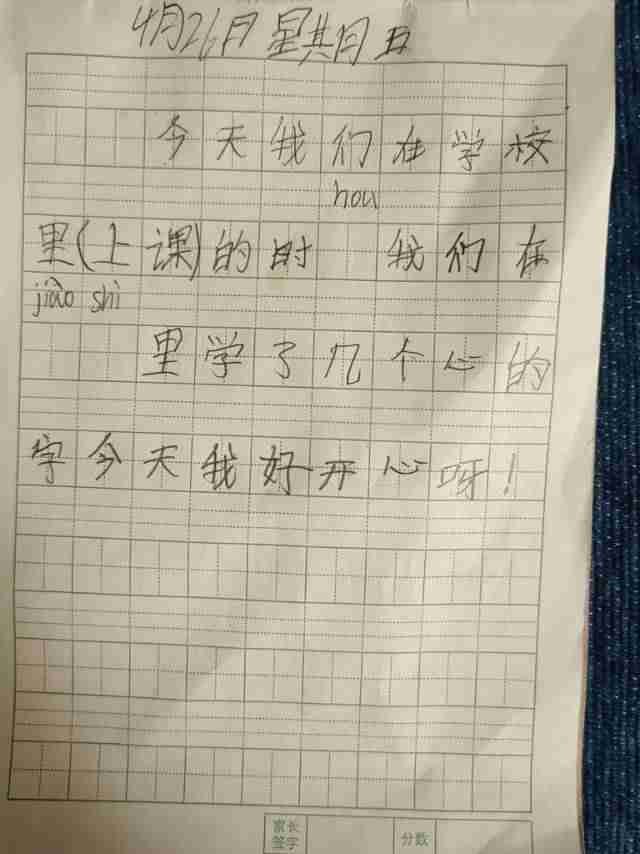 4月26日 星其月日
今天我们在学校
hou
里(上课)的时 我们在
jiào shì
里学了几个心的
字今天我好开心呀!
家长签字 分数